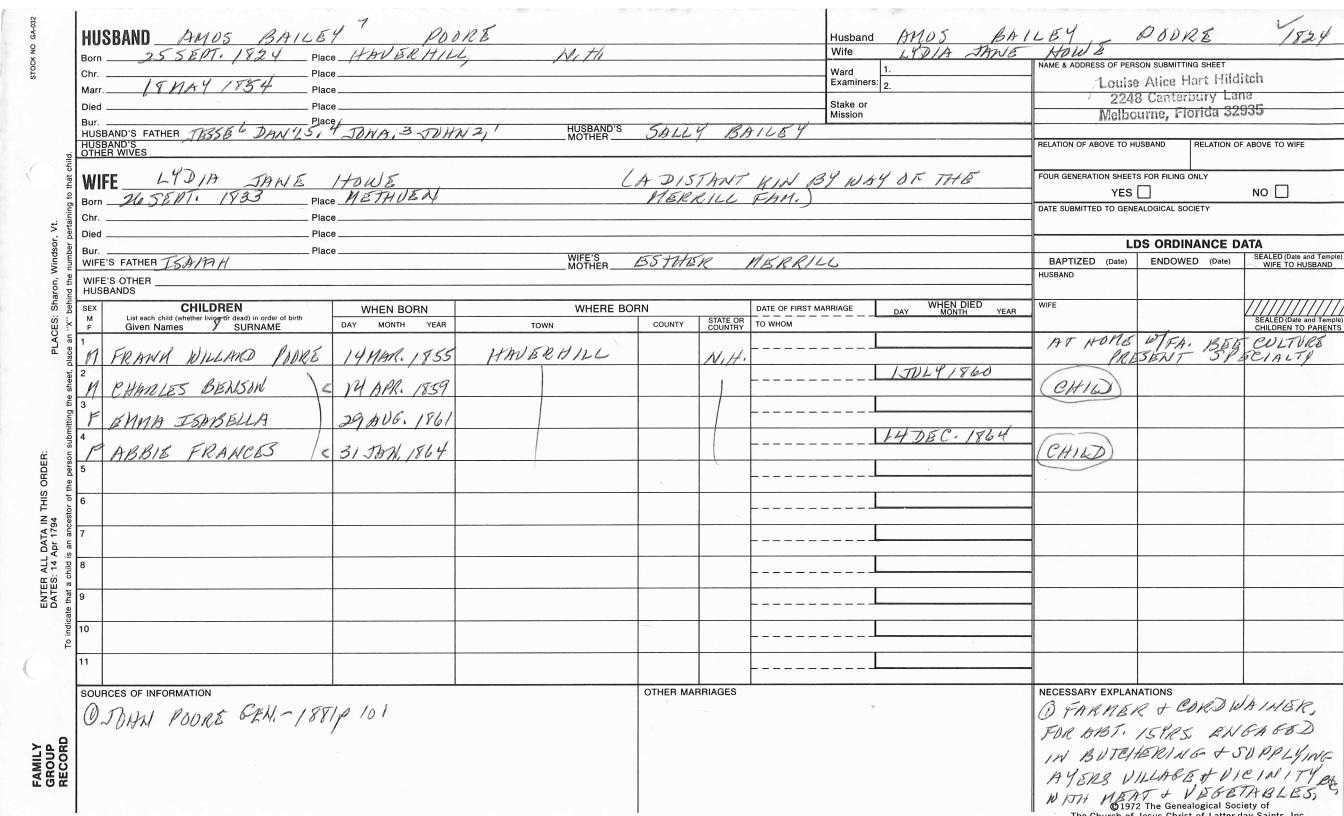 STOCK NO GA-032
HUSBAND AMOS BAILEY 7 POORE
Born 25 SEPT. 1824 Place HAVERHILL, N.H.
Chr. Place
Marr. 18 MAY 1854 Place
Died Place
Bur. Place
HUSBAND'S FATHER JESSE 6 DAN'L 5, 4 JONA, 3 JOHN 2, 1 HUSBAND'S MOTHER SALLY BAILEY
HUSBAND'S OTHER WIVES
Husband AMOS BAILEY POORE 1824
Wife LYDIA JANE HOWE
Ward Examiners: 1.
2.
Stake or Mission
NAME & ADDRESS OF PERSON SUBMITTING SHEET
Louise Alice Hart Hilditch
2248 Canterbury Lane
Melbourne, Florida 32935
RELATION OF ABOVE TO HUSBAND RELATION OF ABOVE TO WIFE
FOUR GENERATION SHEETS FOR FILING ONLY
YES NO
DATE SUBMITTED TO GENEALOGICAL SOCIETY
WIFE LYDIA JANE HOWE (A DISTANT KIN BY WAY OF THE
Born 26 SEPT. 1833 Place METHUEN MERRILL FAM.)
Chr. Place
Died Place
Bur. Place
WIFE'S FATHER ISAIAH WIFE'S MOTHER ESTHER MERRILL
WIFE'S OTHER HUSBANDS
LDS ORDINANCE DATA
BAPTIZED (Date) ENDOWED (Date) SEALED (Date and Temple) WIFE TO HUSBAND
HUSBAND
WIFE
SEALED (Date and Temple) CHILDREN TO PARENTS
SEX M F
CHILDREN
List each child (whether living or dead) in order of birth
Given Names 8 SURNAME
WHEN BORN
DAY MONTH YEAR
WHERE BORN
TOWN COUNTY STATE OR COUNTRY
DATE OF FIRST MARRIAGE
TO WHOM
WHEN DIED
DAY MONTH YEAR
1 M FRANK WILLARD POORE 14 MAR. 1855 HAVERHILL N.H. AT HOME W/FA. BEE CULTURE
PRESENT SPECIALTY
2 M CHARLES BENSON c 14 APR. 1859 1 JULY 1860 CHILD
3 F EMMA ISABELLA 29 AUG. 1861
4 F ABBIE FRANCES c 31 JAN. 1864 14 DEC. 1864 CHILD
5
6
7
8
9
10
11
SOURCES OF INFORMATION
① JOHN POORE GEN. - 1881 p 101
OTHER MARRIAGES
NECESSARY EXPLANATIONS
① FARMER & CORDWAINER,
FOR ABT. 15 YRS. ENGAGED
IN BUTCHERING & SUPPLYING
AYERS VILLAGE & VICINITY
WITH MEAT & VEGETABLES,
©1972 The Genealogical Society of
The Church of Jesus Christ of Latter-day Saints, Inc.
PLACES: Sharon, Windsor, Vt.
To indicate that a child is an ancestor of the person submitting the sheet, place an "X" behind the number pertaining to that child.
ENTER ALL DATA IN THIS ORDER:
DATES: 14 Apr 1794
FAMILY
GROUP
RECORD